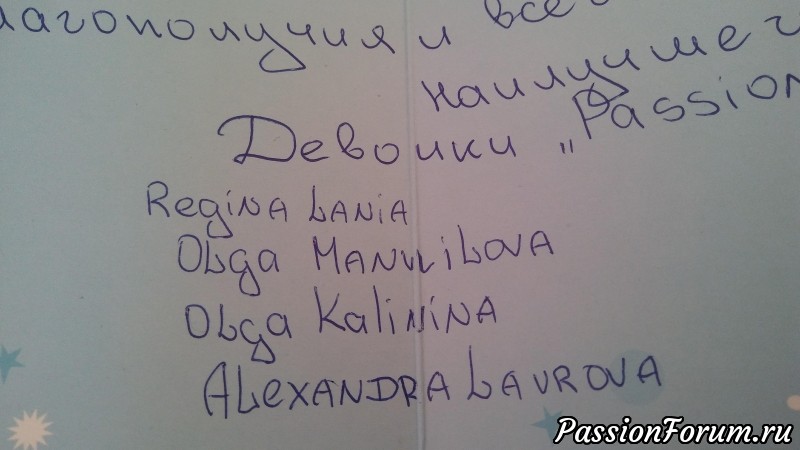 лагополучия и все
наилучшег
Девочки „Passion
Regina Lania
Olga Manuilova
Olga Kalinina
Alexandra Lavrova
PassionForum.ru